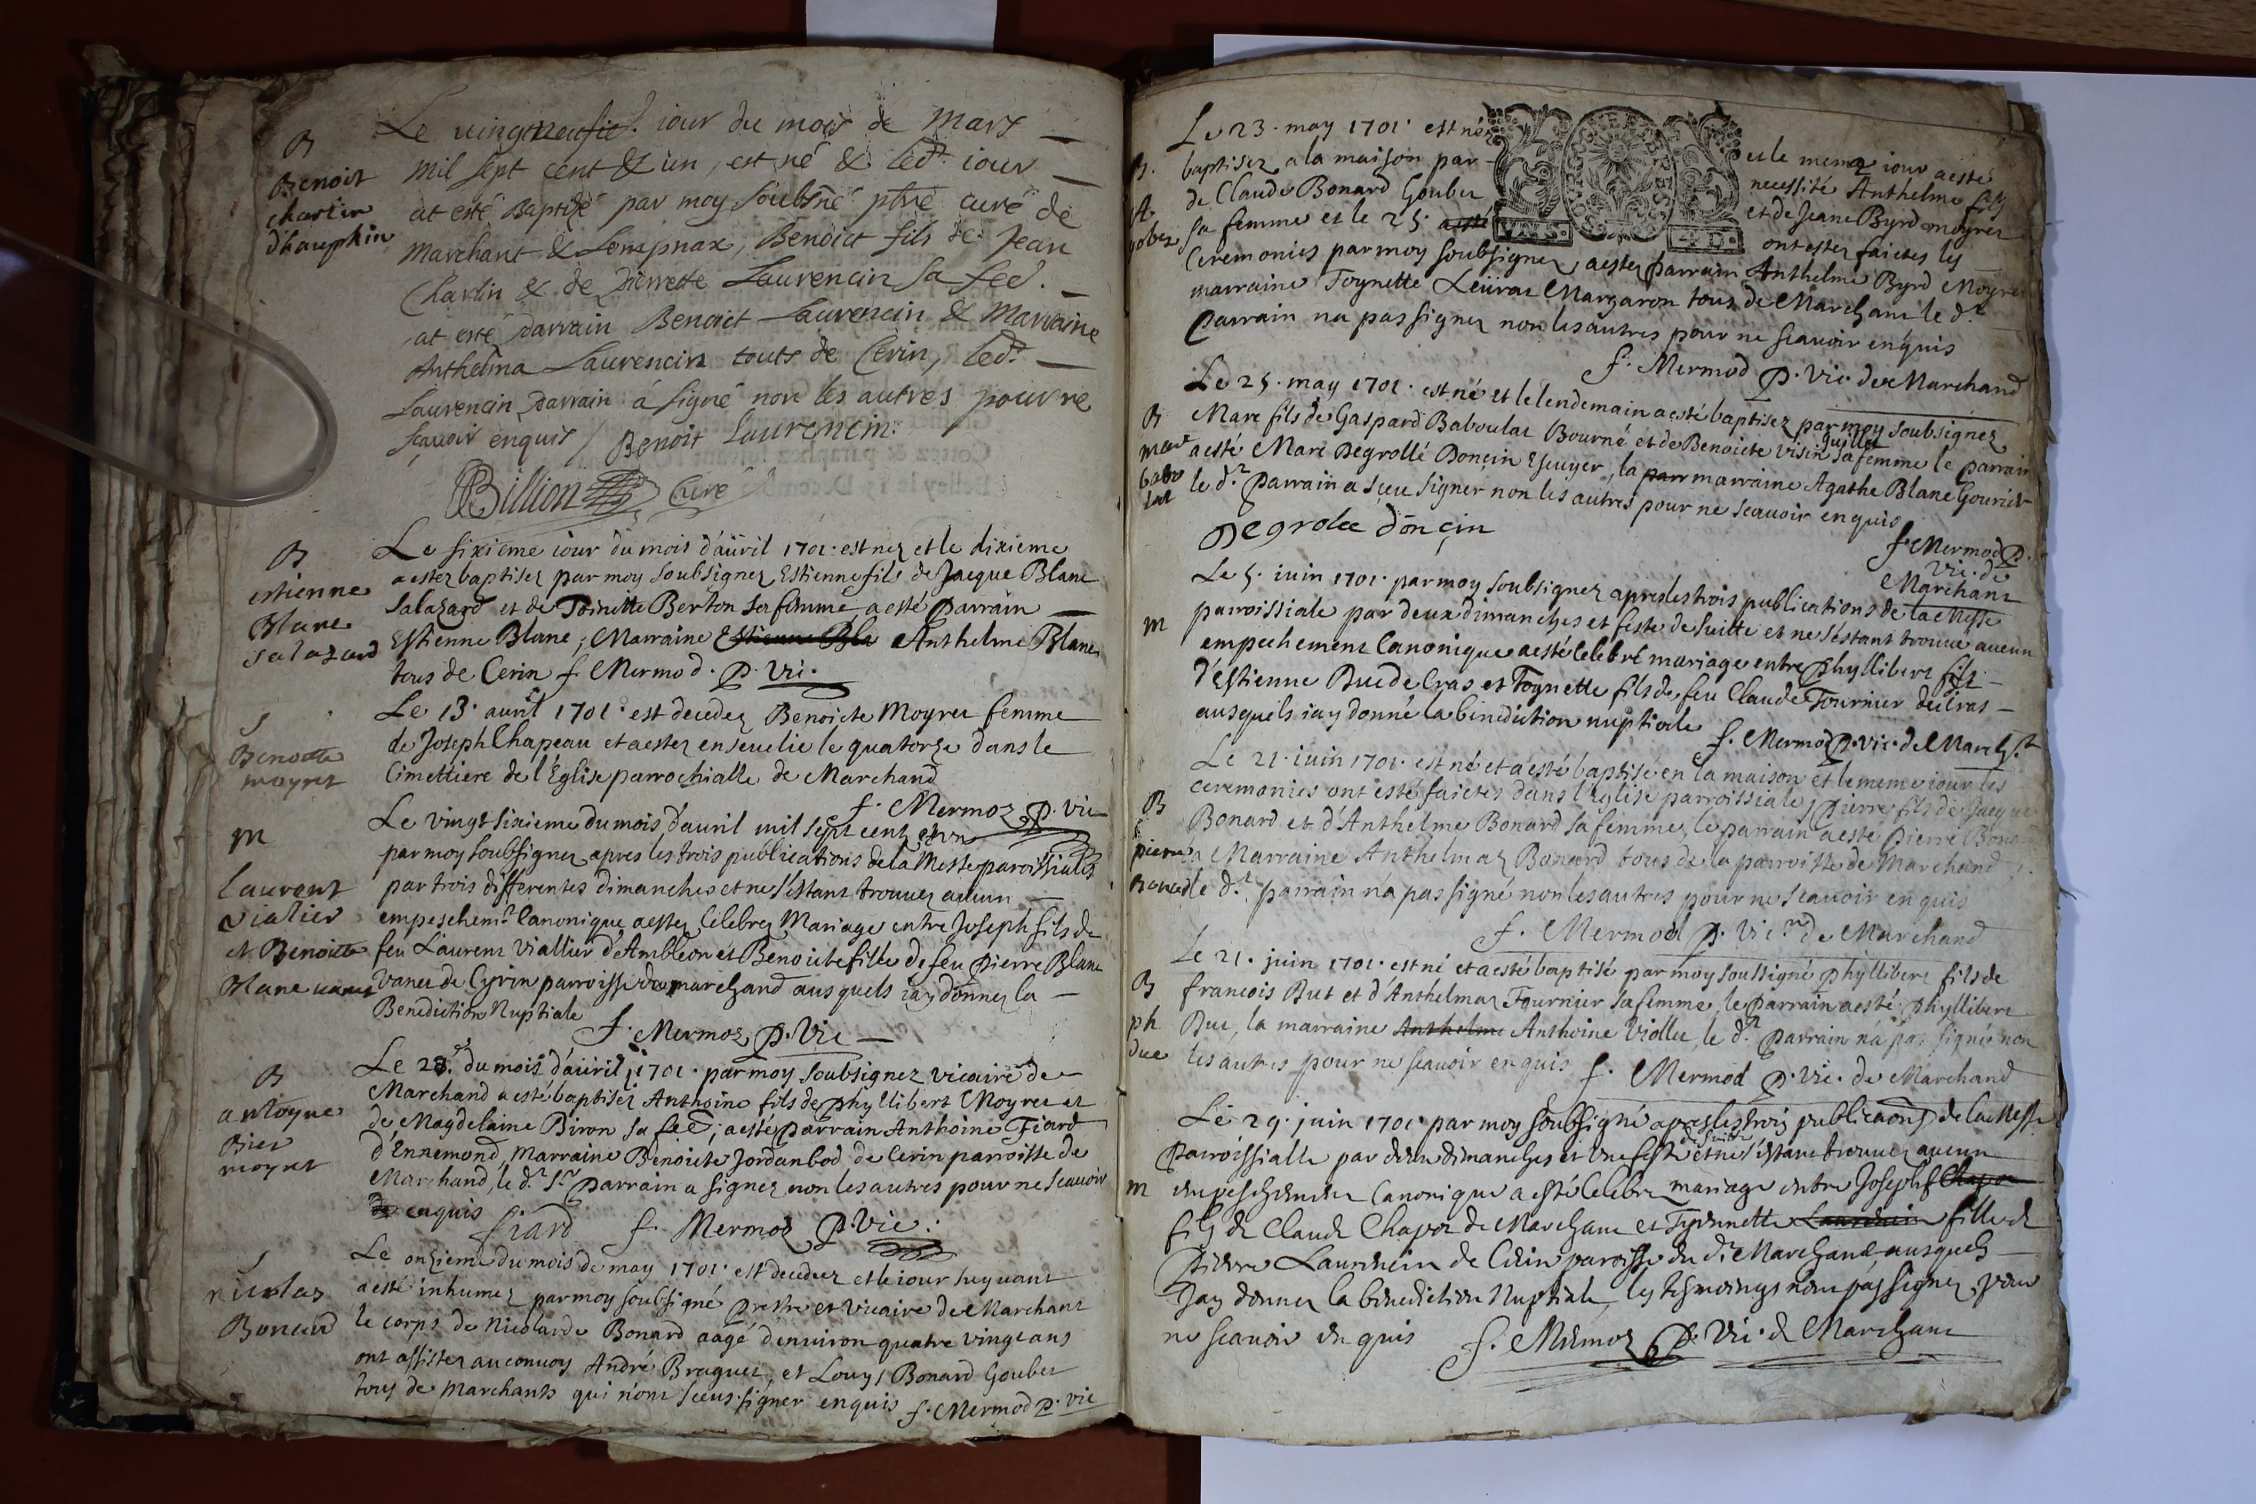 Le vingtneufie. iour du mois de Mars
mil sept cent & un, est né & led. iour
at esté Baptisé par moy soubsné ptre curé de
Marchant & Lompnax, Benoict fils de Jean
Charlin & de Pierrette Laurencin sa fee.
at esté parrain Benoict Laurencin & Marraine
Anthelma Laurencin touts de Cerin, led.
Laurencin parrain á signé non les autres pour ne
sçavoir enquis / Benoit Laurencin.
Billion Curé
B
Benoit
charlin
dhauphin
Le sixieme iour du mois d'auril 1701. est nez et le dixieme
a estez baptisez par moy soubsignez Estienne fils de Jacque Blanc
Salazard et de Toinette Berton sa femme a esté Parrain
Estienne Blanc, Marraine Anthelme Blanc
tous de Cerin f. Mermod. P. Vic.
B
estienne
Blanc
salazard
Le 13. auril 1701. est decedez Benoicte Moyret femme
de Joseph Chapeau et a estez enseuelie le quatorze dans le
Cimettiere de l'Eglise parrochialle de Marchand
f. Mermoz P. Vic
S
Benoitte
moyret
Le vingt sixieme du mois d'auril mil sept cent et un
par moy soubsignez apres les trois publications de la Messe paroissiales
par trois differentes dimanches et ne s'estant trouuez aucun
empeschemt. Canonique a estez Celebrez Mariage entre Joseph fils de
feu Laurent Viallier d'Ambléon et Benoicte fille de feu Pierre Blanc
vanez de Cyrin parroisse de marchand ausquels iay donnez la
Benediction Nuptiale
f. Mermoz P. Vic
M
laurent
vialier
et Benoitte
Blanc
Le 28. du mois d'auril 1701. par moy soubsignez vicaire de
Marchand a esté baptisez Anthoine fils de Phyllibert Moyret et
de Magdelaine Biron sa fee; a esté Parrain Anthoine Fiard
d'Ennemond, Marraine Benoicte Jordanbod de Cerin parroisse de
Marchand, le d. Sr. Parrain a signez non les autres pour ne scauoir
enquis
fiard f. Mermoz P. Vic.
B
antoyne
Bier
moyret
Le onzieme du mois de may 1701. est decedez et le iour suyuant
a esté inhumez par moy soubsigné Prestre et Vicaire de Marchant
le corps de Nicolarde Bonard aagé d'enuiron quatre vingt ans
ont assistez au conuoy André Braguet, et Louys Bonard Goubet
tous de Marchants qui n'ont sceus signer enquis f. Mermod P. vic
S
nicolas
Bonard
Le 23. may 1701. est né et le meme iour a esté
baptisez a la maison par necessité Anthelme fils
de Claude Bonard Goubet et de Jeane Byrd moyret
sa femme et le 25. ont estez faictes les
Ceremonies par moy soubsignez, a estez parrain Anthelme Byrd Moyret
marraine Toynette Leüraz Margaron tous de Marchant le d.
Parrain na pas signez non les autres pour ne scauoir enquis
f. Mermod P. Vic. de Marchand
B.
Le 25. may 1701. est né et le lendemain a esté baptisez par moy soubsignez
Marc fils de Gaspard Baboulaz Bourné et de Benoicte Visin guillet sa femme le parrain
a esté Marc Degrollé Doncin Escuyer, la marraine Agathe Blanc Gouriet
le d. Parrain a sceu signer non les autres pour ne scauoir enquis
Degrolee doncin
f. Mermod P.
Vic. de
Marchant
B
marc
babo
laz
Le 5. iuin 1701. par moy soubsignez apres les trois publications de la Messe
parroissiale par deux dimanches et feste de suitte et ne s'estant trouué aucun
empechement Canonique a esté celebré mariage entre Phyllibert fils
d'Estienne Buc de Cras et Toynette fils de feu Claude Fournier de Cras
ausquels iay donné la benediction nuptiale
f. Mermod P. Vic. de March.
M
Le 21. iuin 1701. est né et a esté baptisé en la maison et le meme iour les
ceremonies ont esté faictes dans l'Eglise parroissiale, Pierre fils de Jacque
Bonard et d'Anthelme Bonard sa femme, le parrain a esté Pierre
la Marraine Anthelmaz Bonard tous de la parroisse de Marchand
le d. parrain n'a pas signé non les autres pour ne scauoir enquis
f. Mermod P. Vic.re de Marchand
B
pierre
Bonard
Le 21. juin 1701. est né et a esté baptisé par moy soussigné Phyllibert fils de
francois But et d'Anthelmaz Fournier sa femme, le Parrain a esté Phyllibert
Duc, la marraine Anthoine Viollet, le d. Parrain n'a pas signé non
les autres pour ne scauoir enquis f. Mermod P. Vic. de Marchand
B
ph
duc
Le 29. juin 1701 par moy soubsigné apres les trois publicaons de la Messe
Parroissialle par deux dimanches et une feste de suitte et ne s'estant trouuez aucun
empeschement Canonique a esté celebre mariage entre Joseph
fils de Claude Chapot de Marchant et Pernette fille de
Pierre Laurencin de Cerin paroisse du d. Marchand ausquels
Jay donnez la benediction Nuptiale, les tesmoings nont pas signez pour
ne scauoir enquis f. Mermoz P. Vic. de Marchant
M